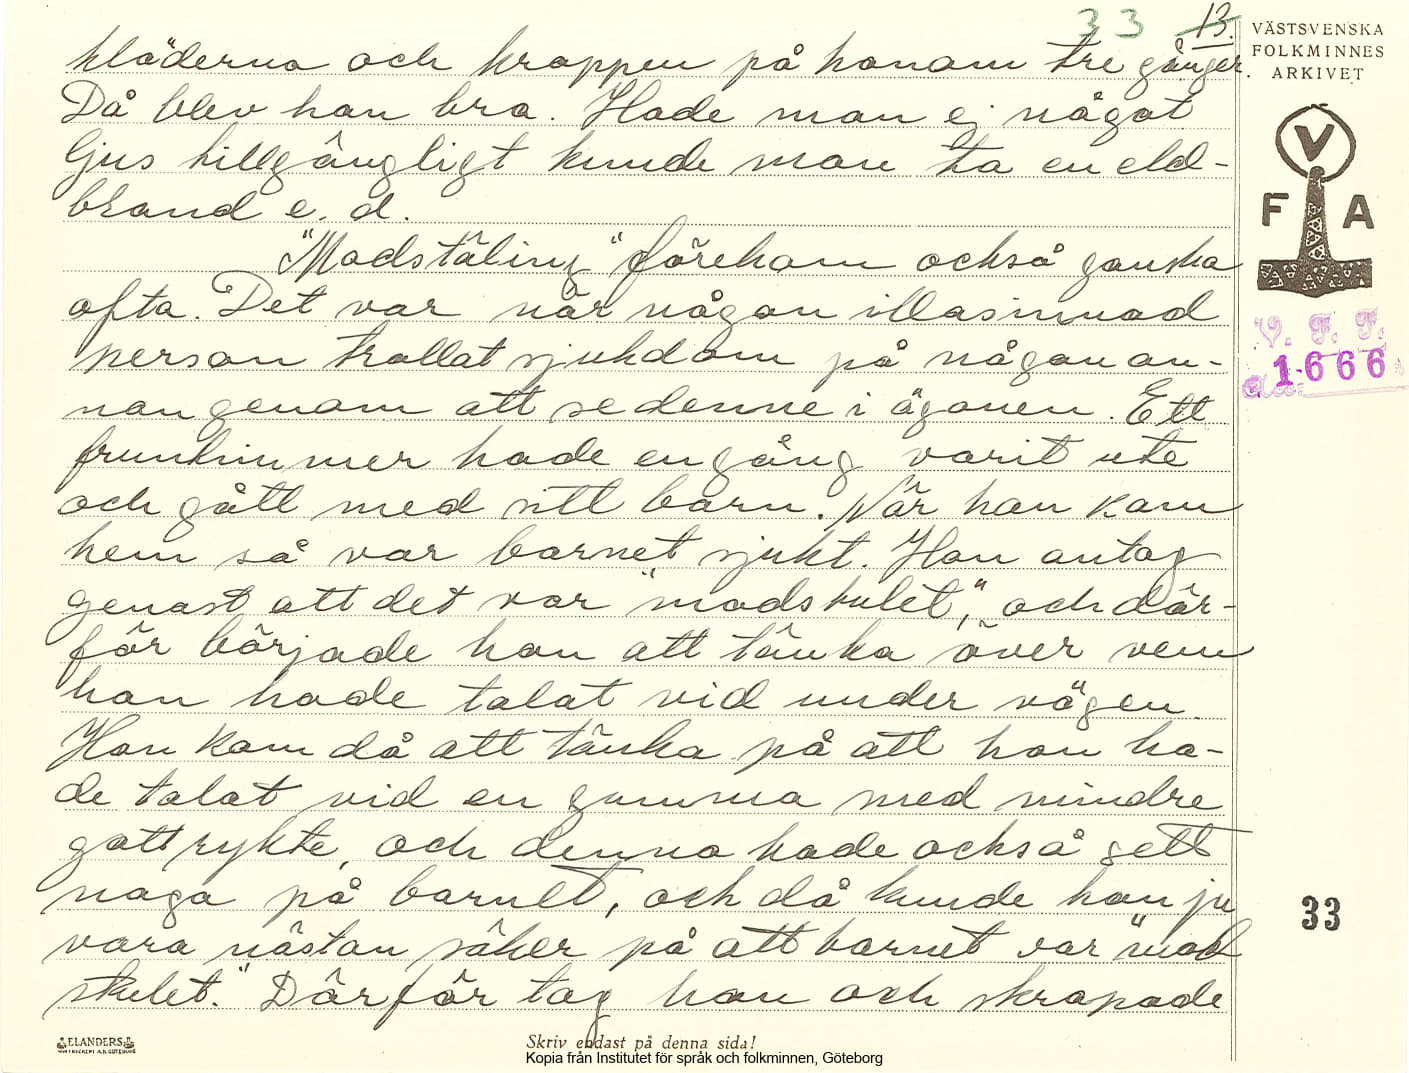 33 13.
VÄSTSVENSKA
FOLKMINNES
ARKIVET
V
F A
V. F. F.
1666
kläderna och kroppen på honom tre gånger.
Då blev han bra. Hade man ej något
ljus tillgängligt kunde man ta en eld-
brand e. d.
"Modstäling" förekom också ganska
ofta. Det var när någon illasinnad
person trollat sjukdom på någon an-
nan genom att se denne i ögonen. Ett
fruntimmer hade en gång varit ute
och gått med sitt barn. När hon kom
hem så var barnet sjukt. Hon antog
genast att det var "modstulet", och där-
för började hon att tänka över vem
hon hade talat vid under vägen.
Hon kom då att tänka på att hon ha-
de talat vid en gumma med mindre
gott rykte, och denna hade också sett
noga på barnet, och då kunde hon ju
vara nästan säker på att barnet var "mod
stulet." Därför tog hon och skrapade
33
ELANDERS
Skriv endast på denna sida!
Kopia från Institutet för språk och folkminnen, Göteborg